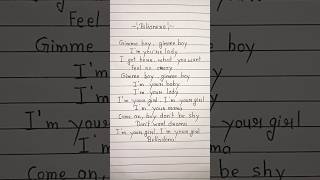 Feel
Gimme
I'm
I'm
I'm your
Come on,
Gimme boy, gimme boy
I'm your lady
I got know what you want
Feel so crazy
Gimme boy, gimme boy
I'm your baby
I'm your lady
I'm your girl, I'm your girl
I'm your mama
Come on, boy don't be shy
Don't want drama
I'm your girl, I'm your girl
Belladona!
boy
your girl
be shy